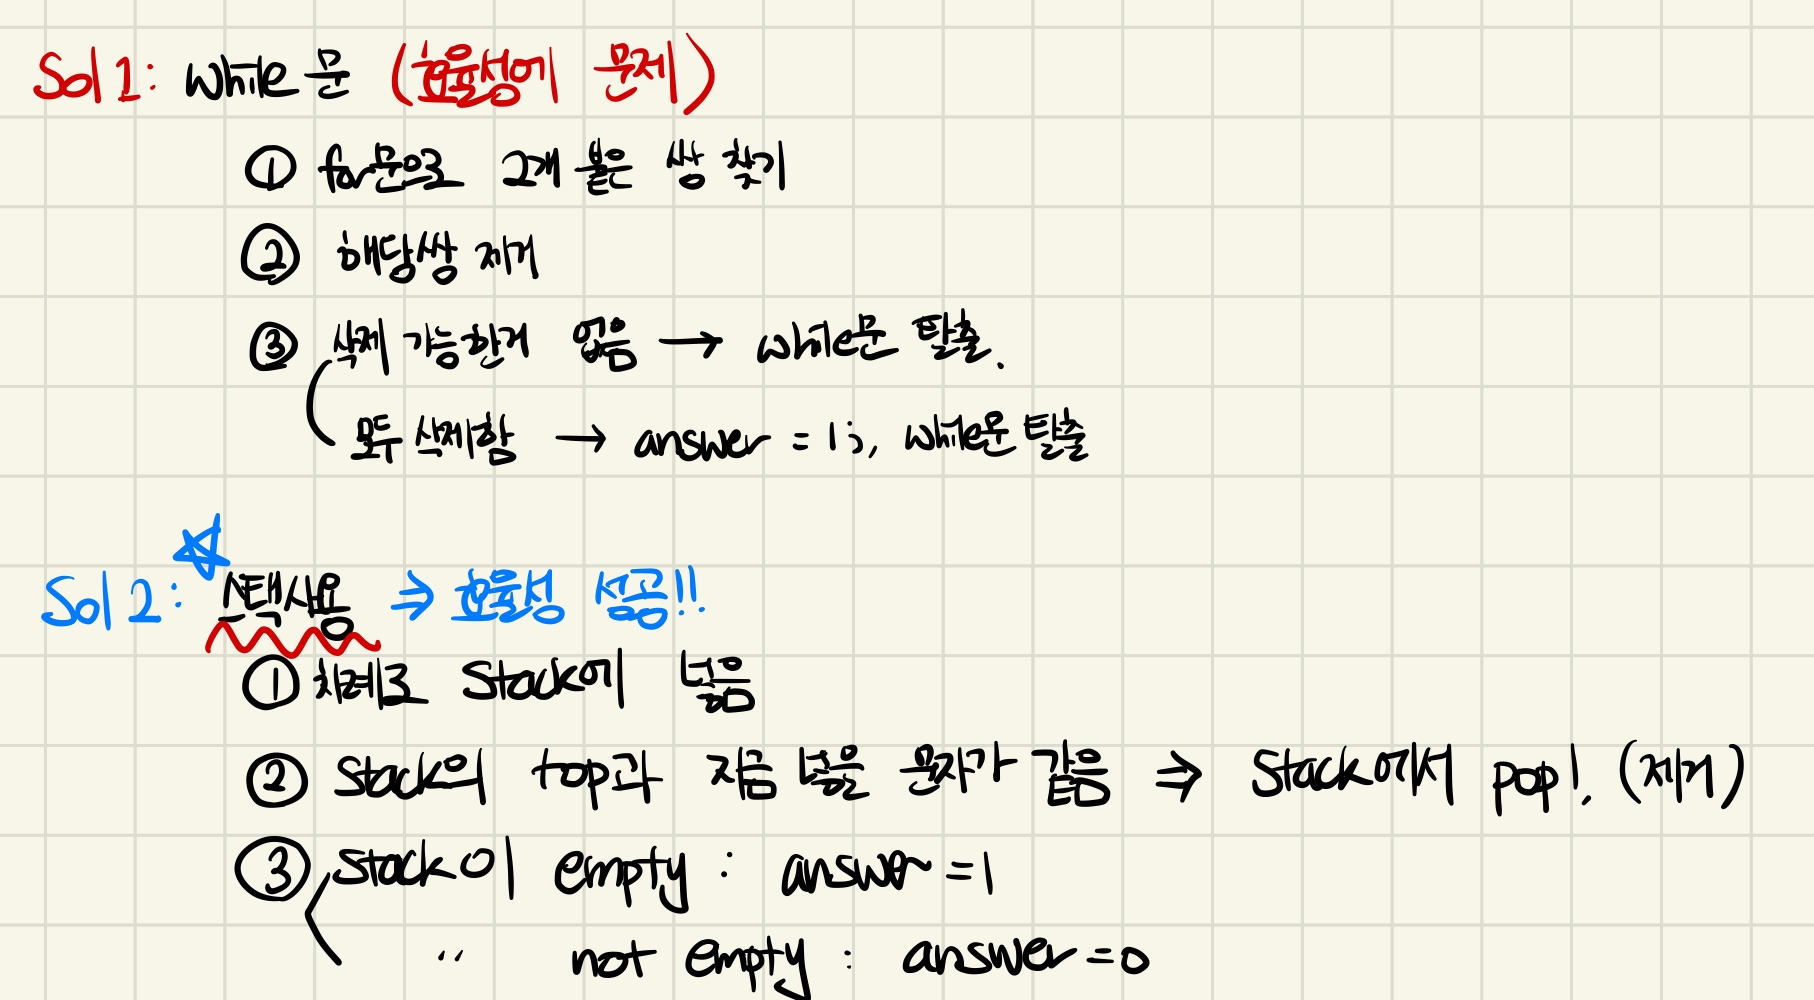 Sol 1: while문 (효율성에 문제)
① for문으로 2개 붙은 쌍 찾기
② 해당쌍 제거
③ 삭제 가능한거 없음 → while문 탈출.
모두 삭제함 → answer = 1;, while문 탈출
Sol 2: ☆ 스택사용 ⇒ 효율성 성공!!
① 차례로 Stack에 넣음
② Stack의 top과 지금 넣을 문자가 같음 ⇒ Stack에서 pop!. (제거)
③ Stack이 empty : answer = 1
〃 not empty : answer = 0